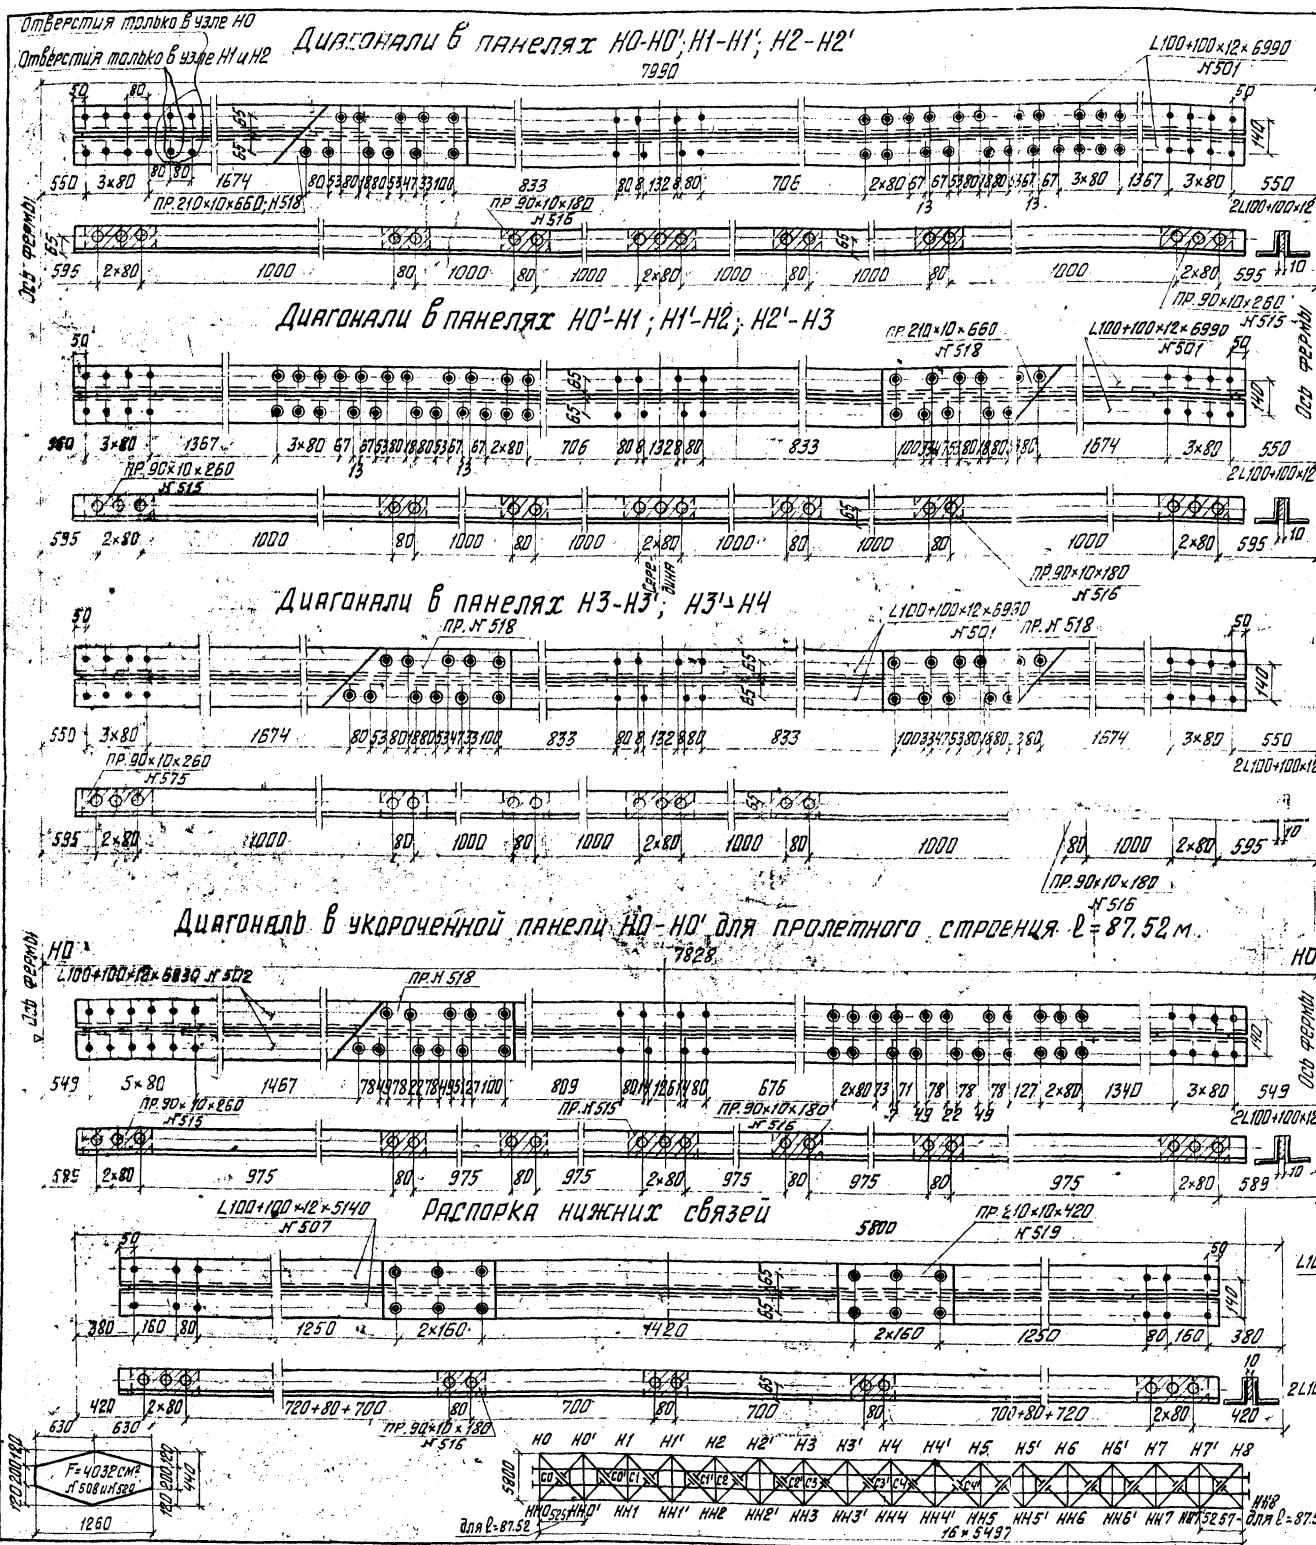 Отверстия только в узле Н0
Отверстия только в узле Н1 и Н2
Диагонали в панелях Н0-Н0'; Н1-Н1'; Н2-Н2'
7990
L100+100×12×6990
N501
50 80 50
65 65 140
80 80
550 3×80 1674 80 53 80 18 80 53 47 33 100 833 80 8 132 8 80 706 2×80 67 67 53 80 18 80 67 67 3×80 1367 3×80 550
13 13
ПР. 210×10×660; N518
ПР. 90×10×180
N516
2L100+100×12
Ось фермы
65 65
595 2×80 1000 80 1000 80 1000 2×80 1000 80 1000 80 1000 2×80 595
10
ПР. 90×10×260
N515
Диагонали в панелях Н0'-Н1; Н1'-Н2; Н2'-Н3
ПР. 210×10×660
N518
L100+100×12×6990
N501
50 50
65 65 140
Ось фермы
3×80 1367 3×80 67 67 53 80 18 80 53 67 67 2×80 706 80 8 132 8 80 833 100 33 47 53 80 18 80 80 1674 3×80 550
13 13
ПР. 90×10×260
N515
2L100+100×12
65
595 2×80 1000 80 1000 80 1000 2×80 1000 80 1000 80 1000 2×80 595
10
Середина
ПР. 90×10×180
N516
Диагонали в панелях Н3-Н3'; Н3'-Н4
ПР. N518
L100+100×12×6930
N501
ПР. N518
50 50
65 65 140
550 3×80 1674 80 53 80 18 80 53 47 33 100 833 80 8 132 8 80 833 100 33 47 53 80 18 80 80 1674 3×80 550
ПР. 90×10×260
N575
2L100+100×12
65
595 2×80 1000 80 1000 80 1000 2×80 1000 80 1000 80 1000 2×80 595
10
ПР. 90×10×180
N516
Диагональ в укороченной панели Н0-Н0' для пролетного строения ℓ=87.52 м.
7828
Н0
L100+100×12×6830 N502
ПР. N518
Ось фермы
140
Ось фермы
549 5×80 1467 78 49 78 22 78 49 51 27 100 809 80 14 126 14 80 676 2×80 73 71 78 78 78 127 2×80 1340 3×80 549
7 49 22 49
ПР. 90×10×260
N515
ПР. N515
ПР. 90×10×180
N516
2L100+100×12
589 2×80 975 80 975 80 975 2×80 975 80 975 80 975 2×80 589
10
Распорка нижних связей
L100+100×12×5140
N507
5800
ПР. 210×10×420
N519
50 50
65 65 140
380 160 80 1250 2×160 1420 2×160 1250 80 160 380
65
10
420 2×80 720+80+700 80 700 80 700 80 700+80+720 2×80 420
ПР. 90×10×180
N516
630 630
120 200 120
F=4032 СМ²
N508 и N520
120 200 120
440
1260
Н0 Н0' Н1 Н1' Н2 Н2' Н3 Н3' Н4 Н4' Н5 Н5' Н6 Н6' Н7 Н7' Н8
5800
С0 С0' С1 С1' С2 С2' С3 С3' С4 С4'
НН0 5257 НН0' НН1 НН1' НН2 НН2' НН3 НН3' НН4 НН4' НН5 НН5' НН6 НН6' НН7 НН7' 5257 НН8
для ℓ=87.52
16×5497
для ℓ=87.5